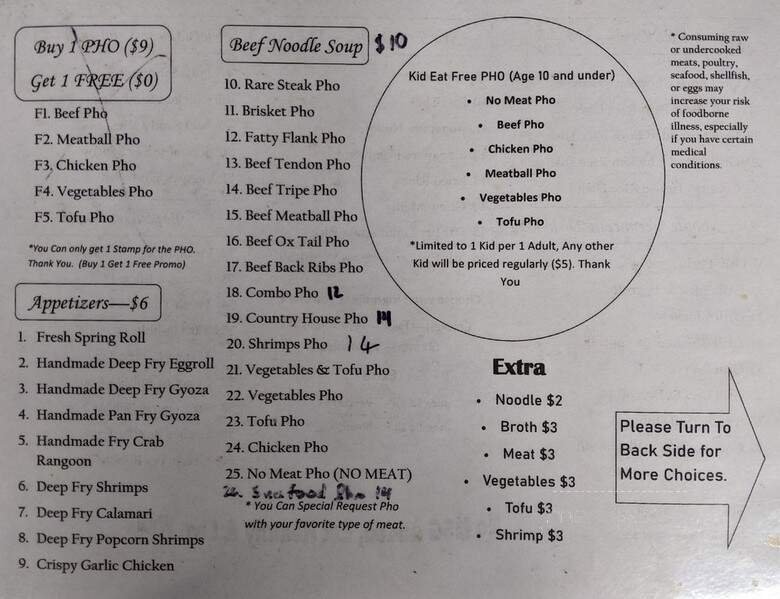 Buy 1 PHO ($9)
Get 1 FREE ($0)
F1. Beef Pho
F2. Meatball Pho
F3. Chicken Pho
F4. Vegetables Pho
F5. Tofu Pho
*You Can only get 1 Stamp for the PHO.
Thank You. (Buy 1 Get 1 Free Promo)
Appetizers—$6
1. Fresh Spring Roll
2. Handmade Deep Fry Eggroll
3. Handmade Deep Fry Gyoza
4. Handmade Pan Fry Gyoza
5. Handmade Fry Crab
Rangoon
6. Deep Fry Shrimps
7. Deep Fry Calamari
8. Deep Fry Popcorn Shrimps
9. Crispy Garlic Chicken
Beef Noodle Soup $10
10. Rare Steak Pho
11. Brisket Pho
12. Fatty Flank Pho
13. Beef Tendon Pho
14. Beef Tripe Pho
15. Beef Meatball Pho
16. Beef Ox Tail Pho
17. Beef Back Ribs Pho
18. Combo Pho 12
19. Country House Pho 14
20. Shrimps Pho 14
21. Vegetables & Tofu Pho
22. Vegetables Pho
23. Tofu Pho
24. Chicken Pho
25. No Meat Pho (NO MEAT)
26. Seafood Pho 14
* You Can Special Request Pho
with your favorite type of meat.
Kid Eat Free PHO (Age 10 and under)
• No Meat Pho
• Beef Pho
• Chicken Pho
• Meatball Pho
• Vegetables Pho
• Tofu Pho
*Limited to 1 Kid per 1 Adult, Any other
Kid will be priced regularly ($5). Thank
You
Extra
• Noodle $2
• Broth $3
• Meat $3
• Vegetables $3
• Tofu $3
• Shrimp $3
* Consuming raw
or undercooked
meats, poultry,
seafood, shellfish,
or eggs may
increase your risk
of foodborne
illness, especially
if you have certain
medical
conditions.
Please Turn To
Back Side for
More Choices.